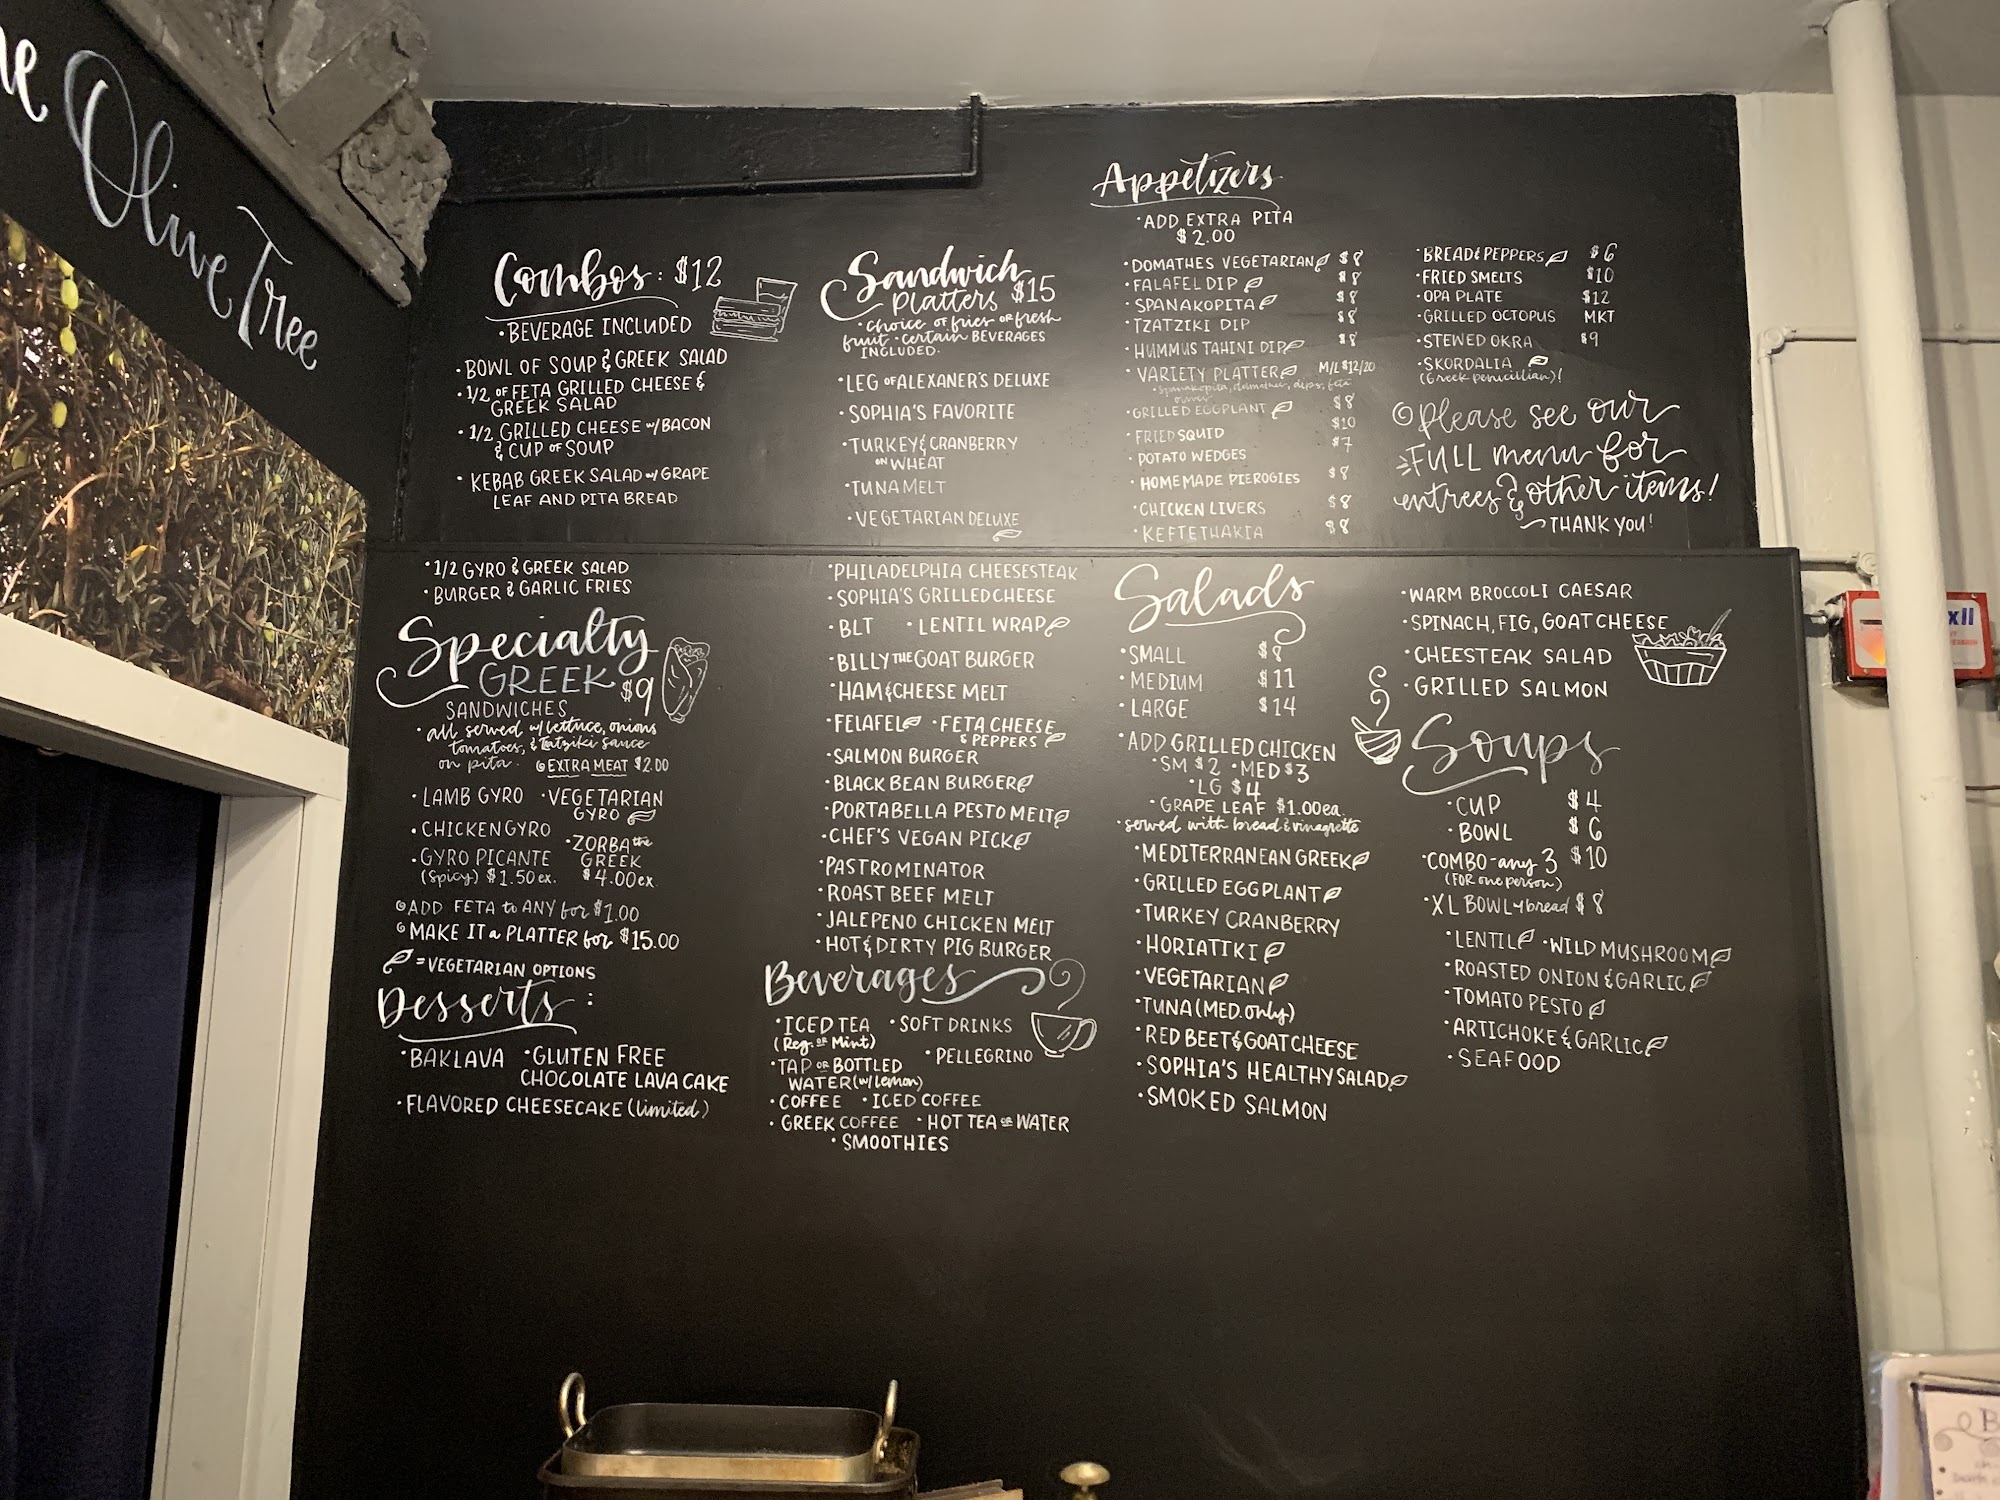 Olive Tree
Combos: $12
• BEVERAGE INCLUDED
• BOWL OF SOUP & GREEK SALAD
• 1/2 OF FETA GRILLED CHEESE &
GREEK SALAD
• 1/2 GRILLED CHEESE w/ BACON
& CUP OF SOUP
• KEBAB GREEK SALAD w/ GRAPE
LEAF AND PITA BREAD
• 1/2 GYRO & GREEK SALAD
• BURGER & GARLIC FRIES
Specialty
GREEK $9
SANDWICHES
• all served w/ lettuce, onions
tomatoes, & Tzatziki sauce
on pita. EXTRA MEAT $2.00
• LAMB GYRO • VEGETARIAN
GYRO
• CHICKEN GYRO • ZORBA the
GREEK
• GYRO PICANTE
(Spicy) $1.50 ex. $4.00 ex.
ADD FETA to ANY for $1.00
MAKE IT a PLATTER for $15.00
= VEGETARIAN OPTIONS
Desserts:
• BAKLAVA • GLUTEN FREE
CHOCOLATE LAVA CAKE
• FLAVORED CHEESECAKE (limited)
Sandwich
Platters $15
• choice of fries or fresh
fruit • certain BEVERAGES
INCLUDED.
• LEG OF ALEXANER'S DELUXE
• SOPHIA'S FAVORITE
• TURKEY & CRANBERRY
ON WHEAT
• TUNA MELT
• VEGETARIAN DELUXE
• PHILADELPHIA CHEESESTEAK
• SOPHIA'S GRILLED CHEESE
• BLT • LENTIL WRAP
• BILLY THE GOAT BURGER
• HAM & CHEESE MELT
• FELAFEL • FETA CHEESE
& PEPPERS
• SALMON BURGER
• BLACK BEAN BURGER
• PORTABELLA PESTO MELT
• CHEF'S VEGAN PICK
• PASTROMINATOR
• ROAST BEEF MELT
• JALEPENO CHICKEN MELT
• HOT & DIRTY PIG BURGER
Beverages
• ICED TEA • SOFT DRINKS
(Reg. or Mint)
• TAP OR BOTTLED • PELLEGRINO
WATER (w/ lemon)
• COFFEE • ICED COFFEE
• GREEK COFFEE • HOT TEA OR WATER
• SMOOTHIES
Appetizers
• ADD EXTRA PITA
$2.00
• DOMATHES VEGETARIAN $8
• FALAFEL DIP $8
• SPANAKOPITA $8
• TZATZIKI DIP $8
• HUMMUS TAHINI DIP $8
• VARIETY PLATTER M/L $12/20
• Spanakopita, domathes, dips, feta
olives
• GRILLED EGGPLANT $8
• FRIED SQUID $10
• POTATO WEDGES $7
• HOMEMADE PIEROGIES $8
• CHICKEN LIVERS $8
• KEFTETHAKIA $8
• BREAD & PEPPERS $6
• FRIED SMELTS $10
• OPA PLATE $12
• GRILLED OCTOPUS MKT
• STEWED OKRA $9
• SKORDALIA
(Greek penicillian)!
Please see our
FULL menu for
entrees & other items!
~ THANK YOU!
Salads
• SMALL $8
• MEDIUM $11
• LARGE $14
• ADD GRILLED CHICKEN
• SM $2 • MED $3
• LG $4
• GRAPE LEAF $1.00 ea.
• served with bread & vinagrette
• MEDITERRANEAN GREEK
• GRILLED EGGPLANT
• TURKEY CRANBERRY
• HORIATIKI
• VEGETARIAN
• TUNA (MED. only)
• RED BEET & GOAT CHEESE
• SOPHIA'S HEALTHY SALAD
• SMOKED SALMON
• WARM BROCCOLI CAESAR
• SPINACH, FIG, GOAT CHEESE
• CHEESTEAK SALAD
• GRILLED SALMON
Soups
• CUP $4
• BOWL $6
• COMBO - any 3 $10
(FOR one person)
• XL BOWL w/ bread $8
• LENTIL • WILD MUSHROOM
• ROASTED ONION & GARLIC
• TOMATO PESTO
• ARTICHOKE & GARLIC
• SEAFOOD